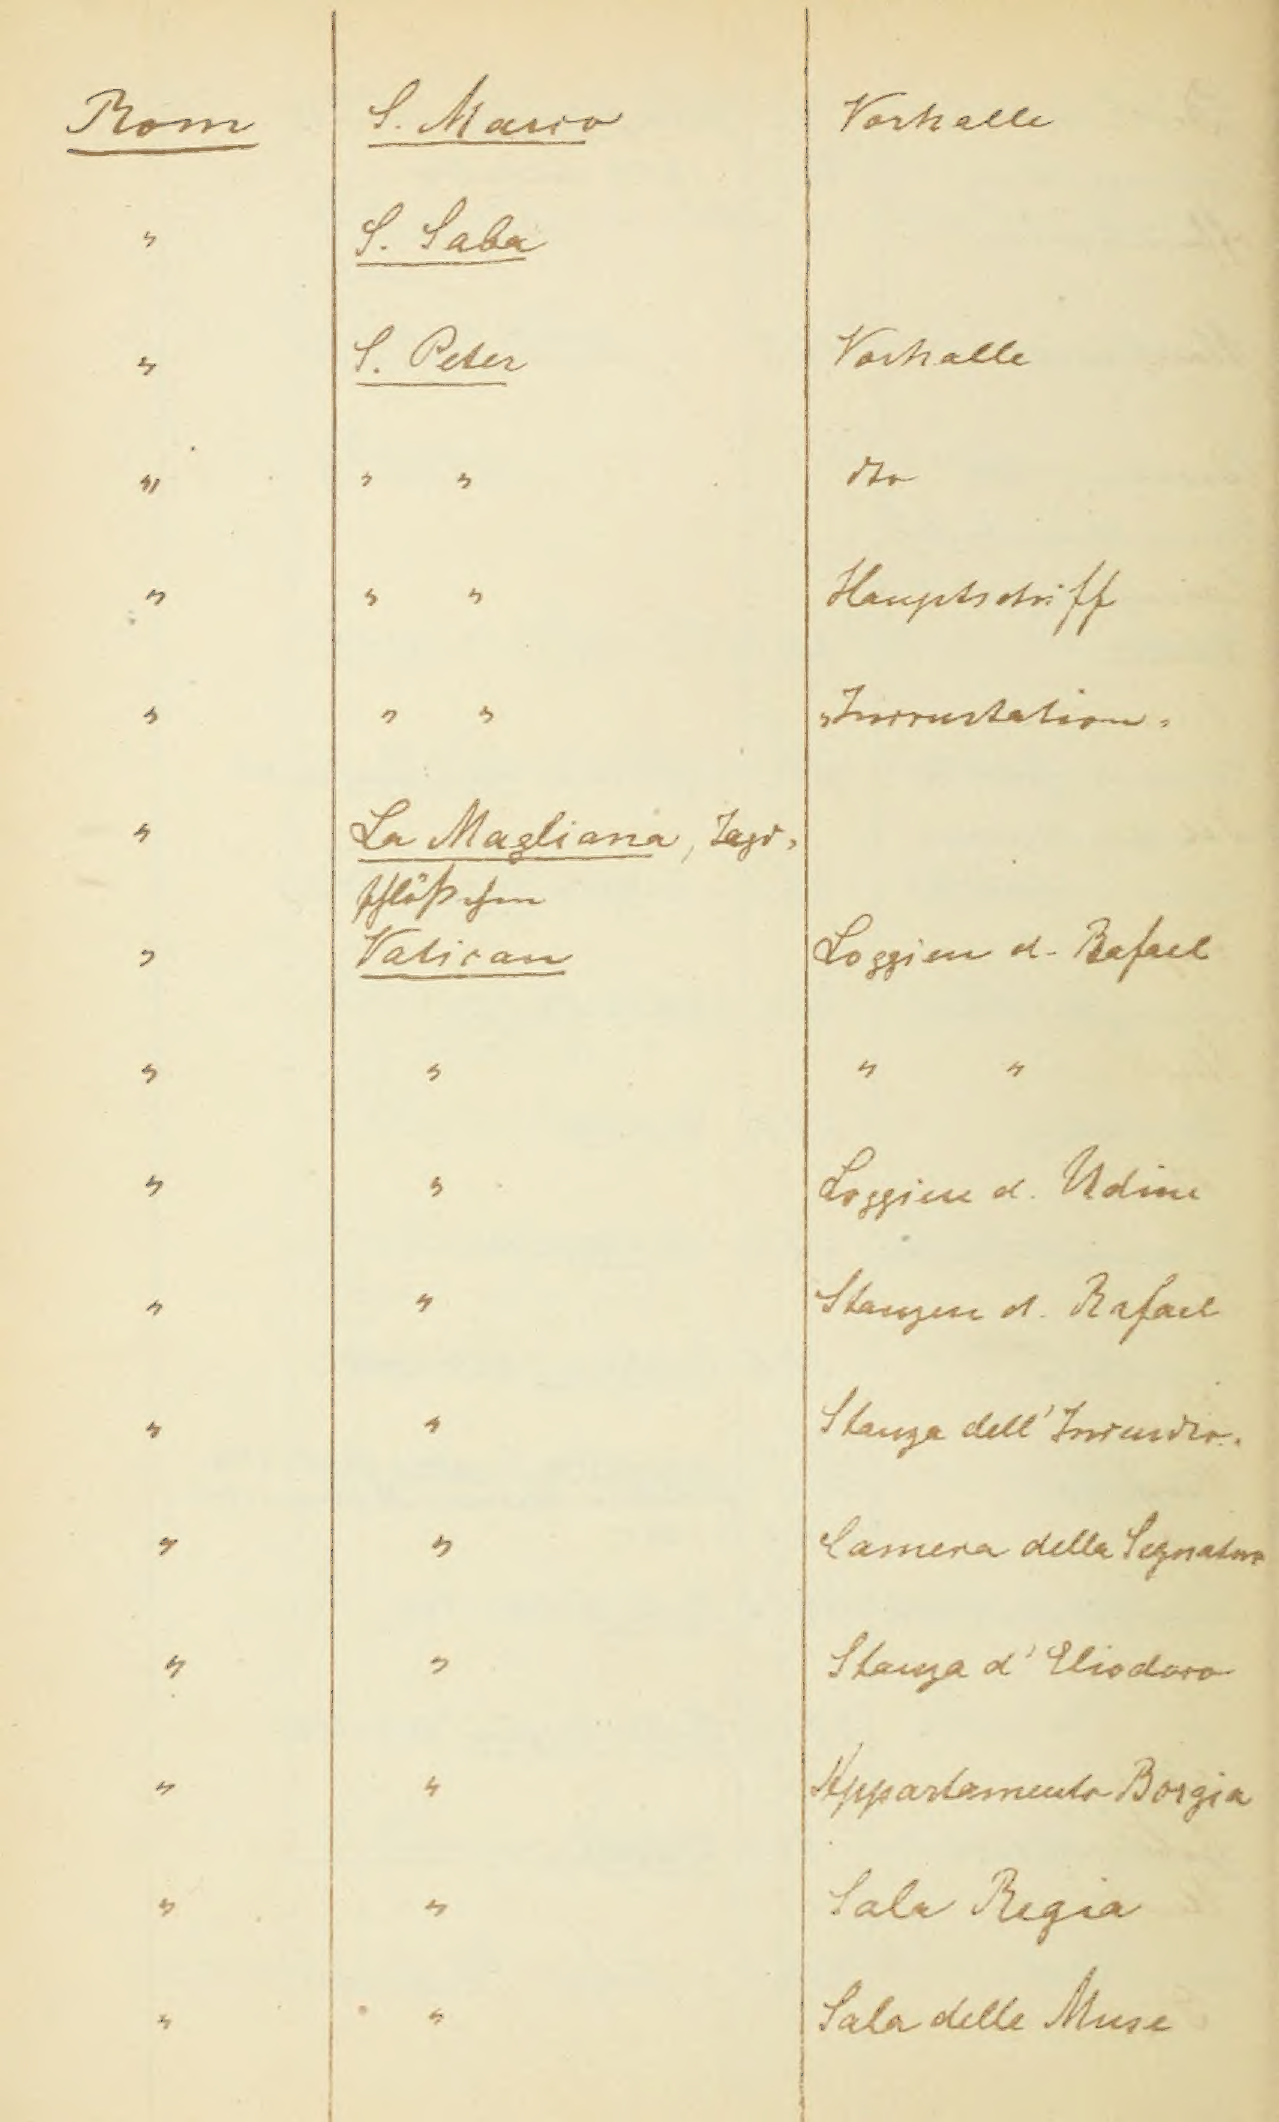 Rom S. Marco Vorhalle
" S. Saba
" S. Peter Vorhalle
" " " dto
" " " Hauptschiff
" " " "Incrustation"
" La Magliana, Jagd-
schlößchen
" Vatican Loggien d. Rafael
" " " "
" " Loggien d. Udine
" " Stanzen d. Rafael
" " Stanza dell' Incendio.
" " Camera della Segnatura
" " Stanza d' Eliodoro
" " Appartamento Borgia
" " Sala Regia
" " Sala delle Muse